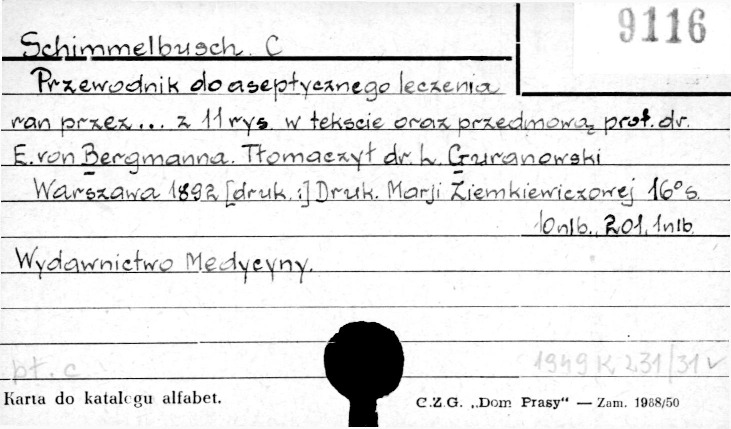 9116
Schimmelbusch. C
Przewodnik do aseptycznego leczenia
ran przez... z 11 rys. w tekscie oraz przedmową prof. dr.
E. von Bergmanna. Tłomaczył dr. L. Guranowski
Warszawa 1892 [druk. i] Druk. Marji Ziemkiewiczowej 16° s.
10 nlb., 201, 1 nlb.
Wydawnictwo Medycyny.
pt. c
1949 K 231/31 v
Karta do katalogu alfabet.
C.Z.G. „Dom Prasy“ — Zam. 1988/50